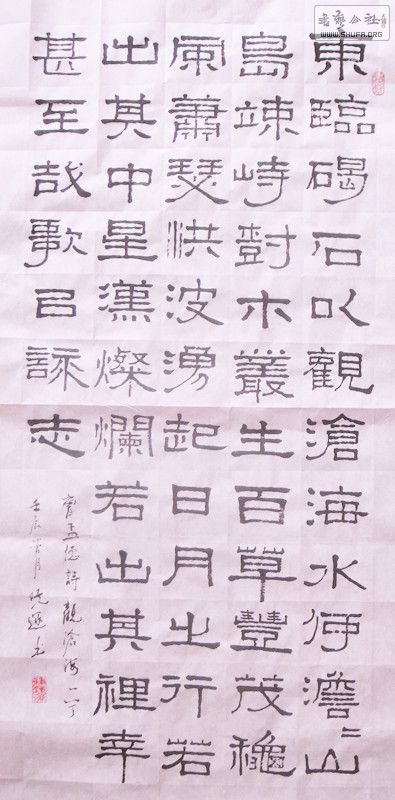 書藝公社
WWW.SHUFA.ORG
東臨碣石以觀滄海水何澹〻山
島竦峙樹木叢生百草豐茂穐
風蕭瑟洪波湧起日月之行若
出其中星漢燦爛若出其裡幸
甚至哉歌以詠志
曹孟德詩觀滄海一
壬辰 月